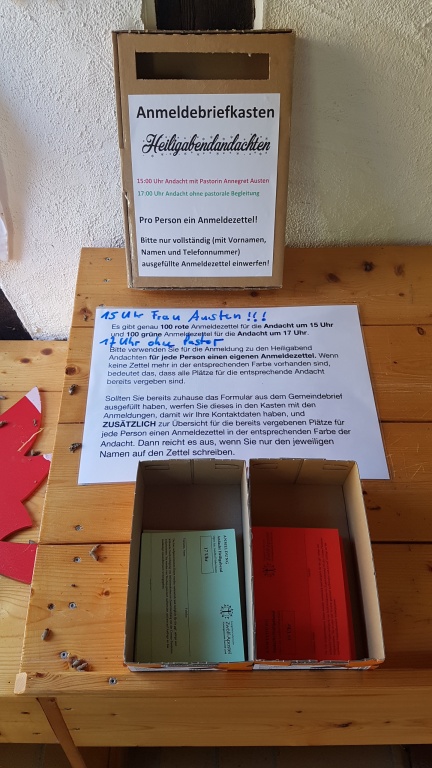 Anmeldebriefkasten
Heiligabendandachten
15:00 Uhr Andacht mit Pastorin Annegret Austen
17:00 Uhr Andacht ohne pastorale Begleitung
Pro Person ein Anmeldezettel!
Bitte nur vollständig (mit Vornamen,
Namen und Telefonnummer)
ausgefüllte Anmeldezettel einwerfen!
15 Uhr Frau Austen!!!
Es gibt genau 100 rote Anmeldezettel für die Andacht um 15 Uhr
und 100 grüne Anmeldezettel für die Andacht um 17 Uhr.
17 Uhr ohne Pastor
Bitte verwenden Sie für die Anmeldung zu den Heiligabend
Andachten für jede Person einen eigenen Anmeldezettel. Wenn
keine Zettel mehr in der entsprechenden Farbe vorhanden sind,
bedeutet das, dass alle Plätze für die entsprechende Andacht
bereits vergeben sind.
Sollten Sie bereits zuhause das Formular aus dem Gemeindebrief
ausgefüllt haben, werfen Sie dieses in den Kasten mit den
Anmeldungen, damit wir Ihre Kontaktdaten haben, und
ZUSÄTZLICH zur Übersicht für die bereits vergebenen Plätze für
jede Person einen Anmeldezettel in der entsprechenden Farbe der
Andacht. Dann reicht es aus, wenn Sie nur den jeweiligen
Namen auf den Zettel schreiben.
ANMELDUNG
17 Uhr